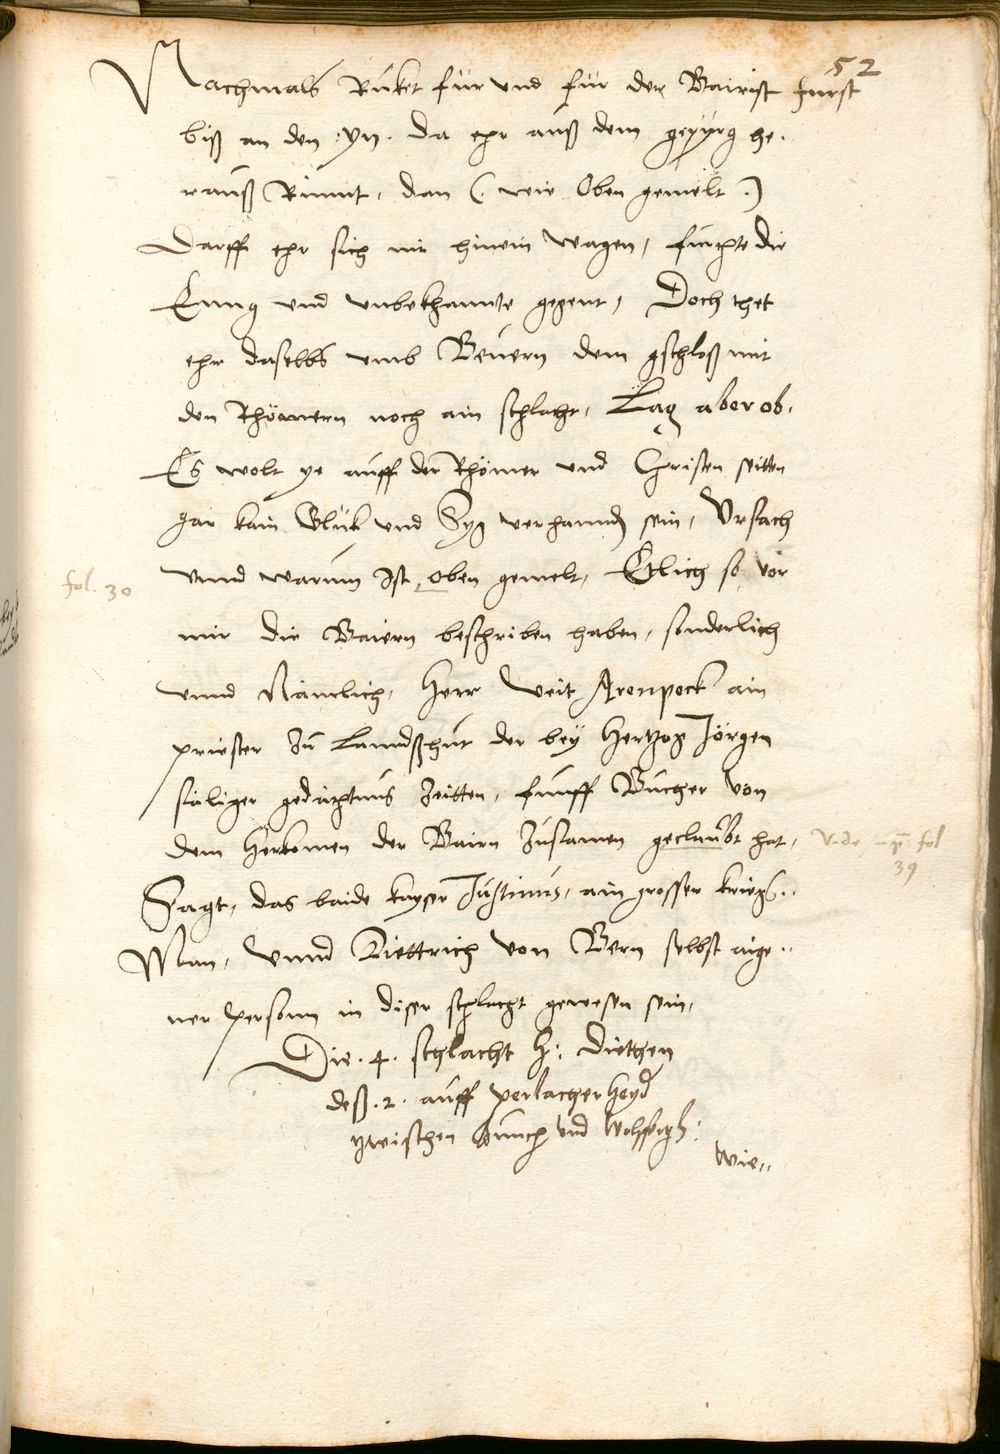 52
Nachmals Ruket für und für der Bairist fürst
biß an den yn. da ehr auß dem gepÿrg he.
rauß Rinnt, dan (. wie Oben gemelt .)
Darff ehr sich nit hinein wagen, furchte die
Enng und unbekhannte gegent, Doch thet
ehr daselbs umb Beuern dem gschloß mit
den Rhömern noch ain schlacht, Lag aber ob.
Es wolt ye auff der Rhömer und Christen seitten
gar kain Glük und Syg verhannd sein, Ursach
unnd warum Ist oben gemelt, Etlich so vor
fol. 30
mir die Baiern beschriben haben, sonderlich
unnd Nämlich, Herr Veit Arenpeck ain
priester zu Lanndßhut der bey Hertzog Jörgen
säliger gedächtnus Zeitten, funff Bücher von
dem Herkomen der Bairn Zusamen geclaubt hat,
Vide fol
39
Sagt, das baide kayser Justinus, ain grosser kriegs..
Man, Unnd Diettrich von Bern selbst aige..
ner person in diser schlacht gewesen sein,
Die .4. schlacht H: Diethen
deß .2. auff perlacher heyd
zwischen und
Wie..